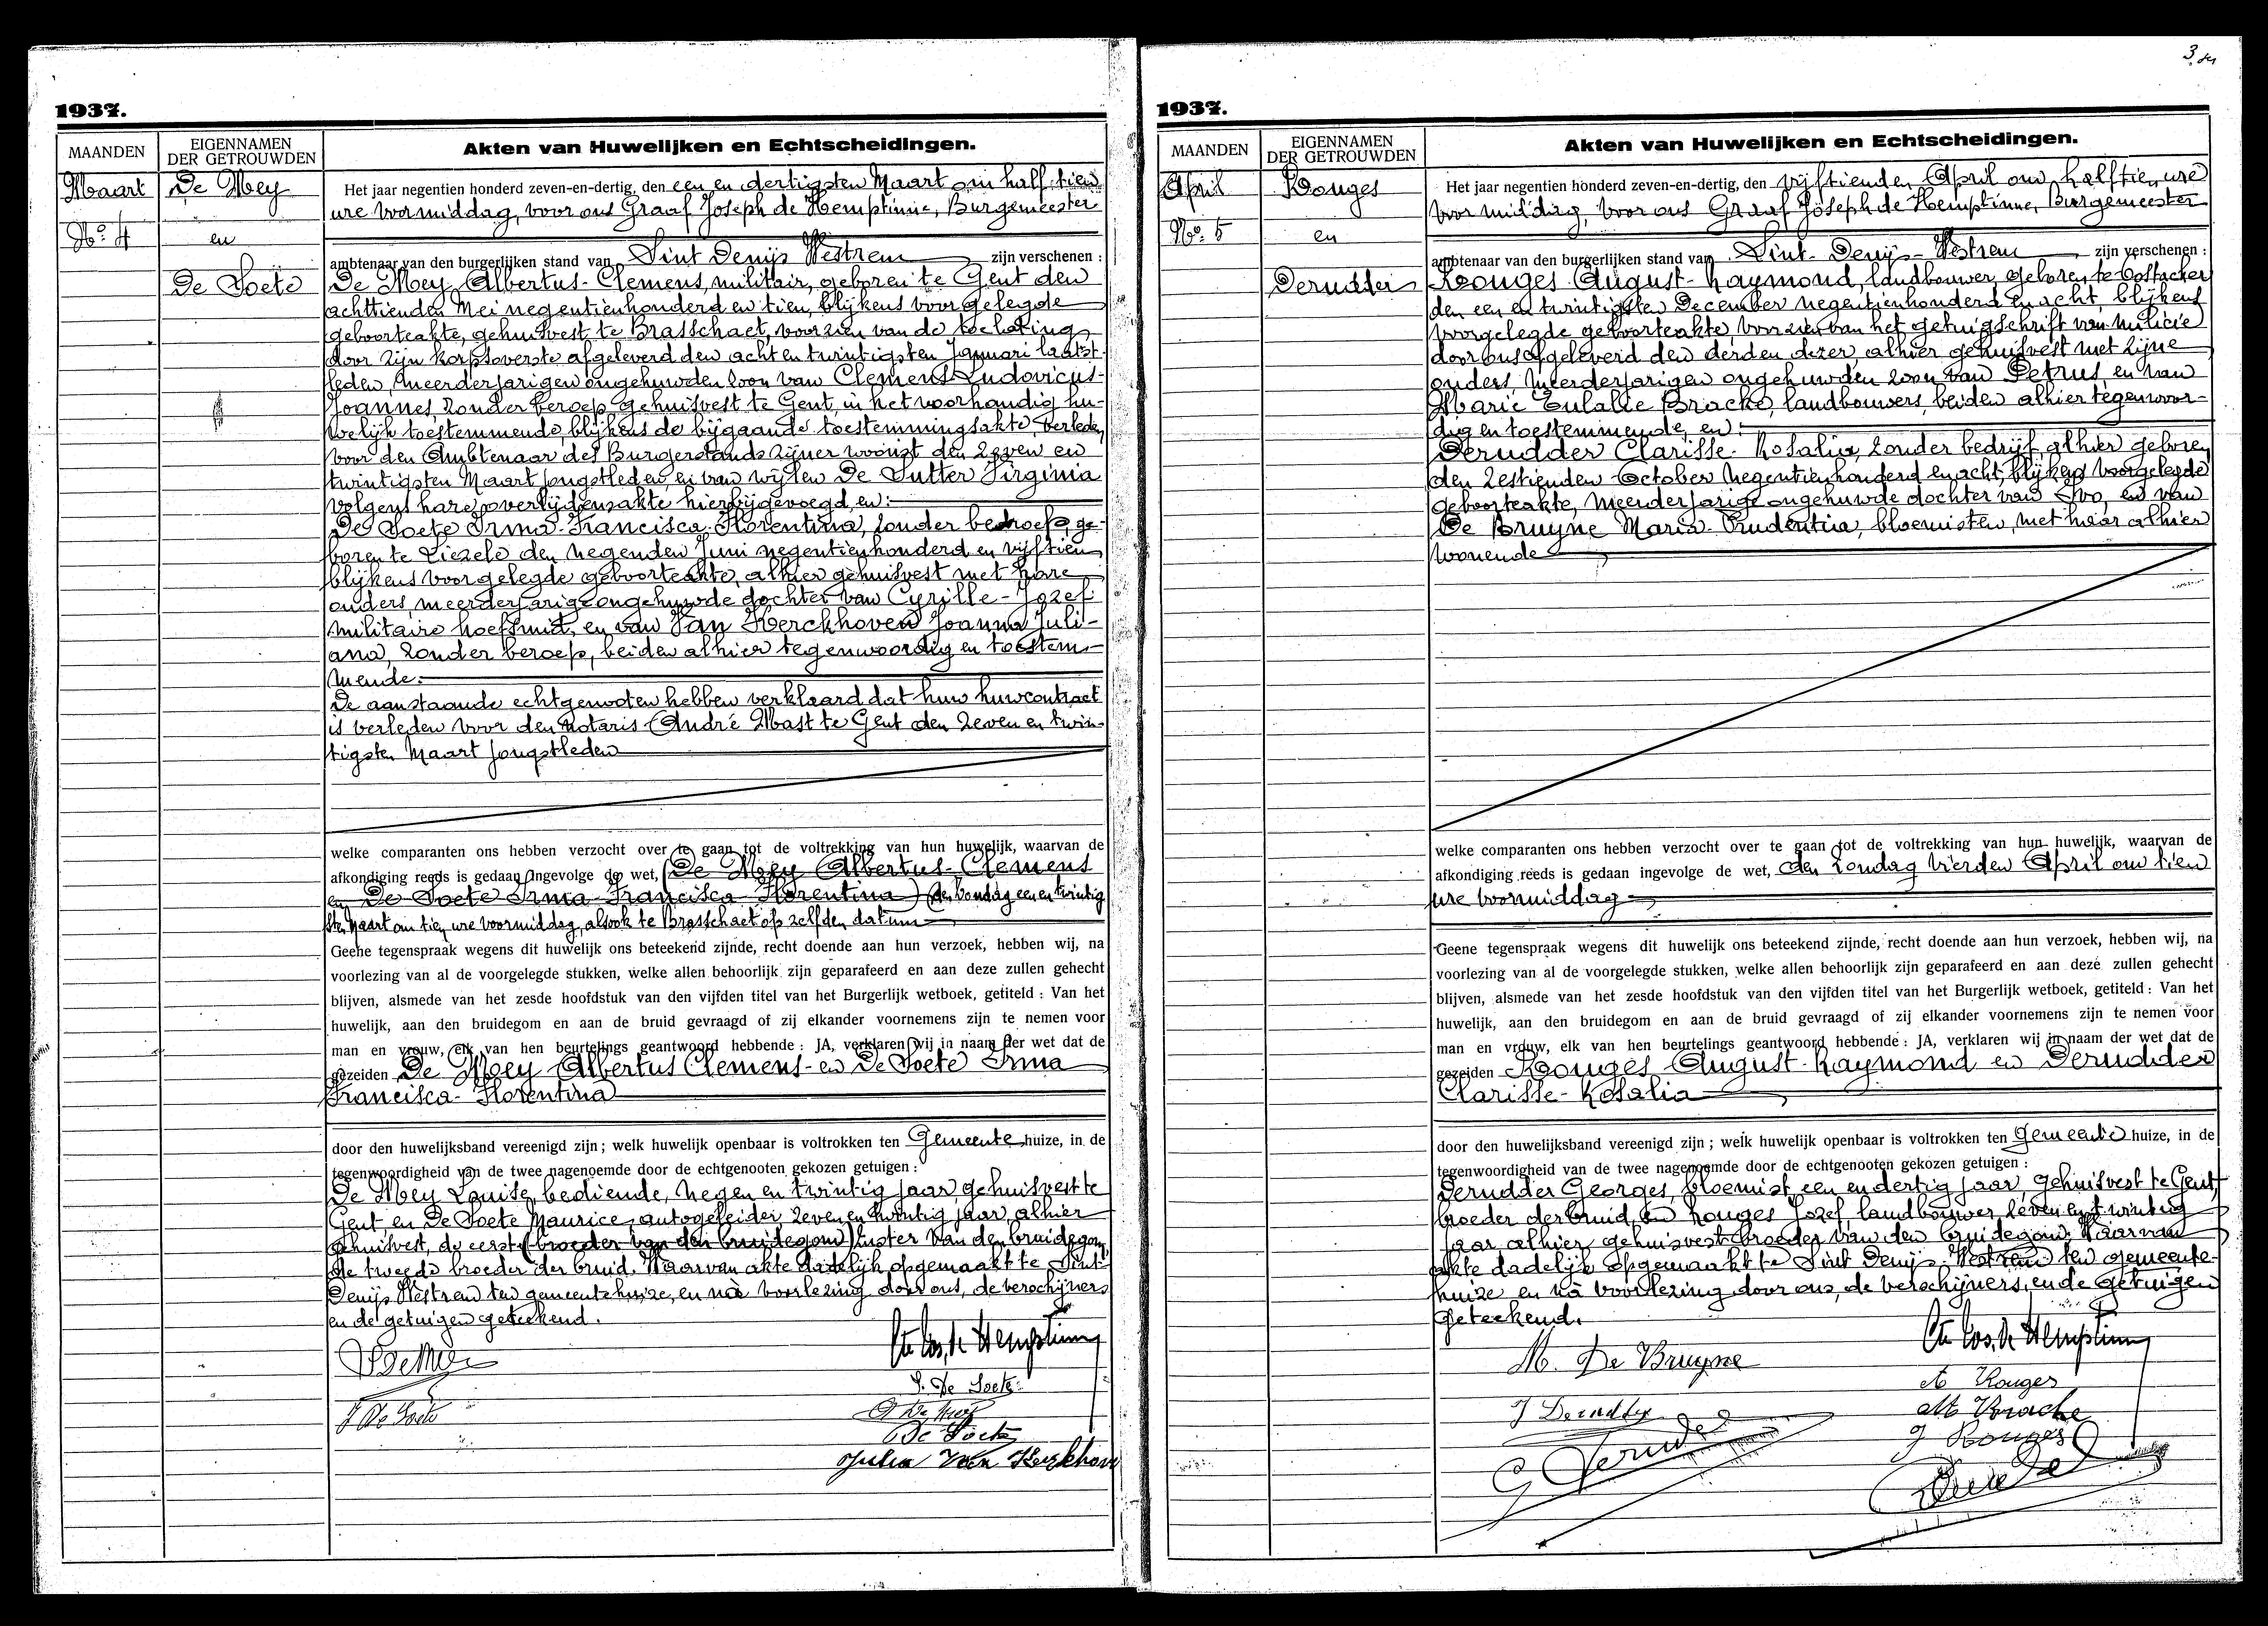 1937.
MAANDEN
EIGENNAMEN
DER GETROUWDEN
Akten van Huwelijken en Echtscheidingen.
Maart
De Mey
N° 4
en
De Soete
Het jaar negentien honderd zeven-en-dertig, den een en dertigsten Maart om half tien
ure voormiddag, voor ons Graaf Joseph de Hemptinne, Burgemeester
ambtenaar van den burgerlijken stand van Sint Denijs Westrem zijn verschenen :
De Mey Albertus-Clemens, militair, geboren te Gent den
achttienden Mei negentienhonderd en tien, blijkens voorgelegde
geboorteakte, gehuisvest te Brasschaet, voorzien van de toelating
door zijn korpsoverste afgeleverd den acht en twintigsten Januari laatst-
leden, meerderjarigen ongehuwden zoon van Clemens Ludovicus-
Joannes, zonder beroep, gehuisvest te Gent, in het voorhandig hu-
welijk toestemmende, blijkens de bijgaande toestemmingsakte, verleden
voor den Ambtenaar des Burgerstands zijner woonst den zeven en
twintigsten Maart jongstleden, en van wijlen De Sutter Virginia
volgens hare overlijdensakte hierbijgevoegd, en:
De Soete Irma-Francisca-Florentina, zonder beroep, ge-
boren te Liezele den negenden Juni negentienhonderd en vijftien
blijkens voorgelegde geboorteakte, alhier gehuisvest met hare
ouders, meerderjarige ongehuwde dochter van Cyrille-Jozef
militaire hoefsmid, en van Van Kerckhoven Joanna Juli-
ana, zonder beroep, beiden alhier tegenwoordig en toestem-
mende.
De aanstaande echtgenooten hebben verklaard dat hun huwcontract
is verleden voor den notaris André Mast te Gent den zeven en twin-
tigsten Maart jongstleden
welke comparanten ons hebben verzocht over te gaan tot de voltrekking van hun huwelijk, waarvan de
afkondiging reeds is gedaan ingevolge de wet, (De Mey Albertus-Clemens
en De Soete Irma-Francisca-Florentina) den Zondag een en twintig
sten Maart om tien ure voormiddag, alsook te Brasschaet op zelfden datum
Geene tegenspraak wegens dit huwelijk ons beteekend zijnde, recht doende aan hun verzoek, hebben wij, na
voorlezing van al de voorgelegde stukken, welke allen behoorlijk zijn geparafeerd en aan deze zullen gehecht
blijven, alsmede van het zesde hoofdstuk van den vijfden titel van het Burgerlijk wetboek, getiteld : Van het
huwelijk, aan den bruidegom en aan de bruid gevraagd of zij elkander voornemens zijn te nemen voor
man en vrouw, elk van hen beurtelings geantwoord hebbende : JA, verklaren wij in naam der wet dat de
gezeiden De Mey Albertus Clemens- en De Soete Irma
Francisca-Florentina
door den huwelijksband vereenigd zijn ; welk huwelijk openbaar is voltrokken ten Gemeente huize, in de
tegenwoordigheid van de twee nagenoemde door de echtgenooten gekozen getuigen :
De Mey Louise, bediende, negen en twintig jaar, gehuisvest te
Gent en De Soete Maurice, autogeleider, zeven en twintig jaar, alhier
gehuisvest, de eerste (broeder van den bruidegom) zuster van den bruidegom,
de tweede broeder der bruid. Waarvan akte dadelijk opgemaakt te Sint-
Denijs Westrem ten gemeentehuize, en na voorlezing door ons, de verschijners
en de getuigen geteekend.
Cte Jos. de Hemptinne
I. De Soete
De Soete
Julia Van Kerkhove
1937.
MAANDEN
EIGENNAMEN
DER GETROUWDEN
Akten van Huwelijken en Echtscheidingen.
April
Rouges
N° 5
en
Derudder
Het jaar negentien honderd zeven-en-dertig, den vijftienden April om halftien ure
voormiddag, voor ons Graaf Joseph de Hemptinne, Burgemeester
ambtenaar van den burgerlijken stand van Sint-Denijs-Westrem zijn verschenen :
Rouges August-Raymond, landbouwer, geboren te Oostacker
den een en twintigsten December negentienhonderd en acht, blijkens
voorgelegde geboorteakte, voorzien van het getuigschrift van milicie
door ons afgeleverd den derden dezer, alhier gehuisvest met zijne
ouders, meerderjarigen ongehuwden zoon van Petrus, en van
Marie Eulalie Bracke, landbouwers, beiden alhier tegenwoor-
dig en toestemmende, en:
Derudder Clarisse-Rosalia, zonder bedrijf, alhier geboren
den zestienden October negentienhonderd en acht, blijkens voorgelegde
geboorteakte, meerderjarige ongehuwde dochter van Ivo, en van
De Bruyne Maria-Prudentia, bloemisten, met haar alhier
wonende
welke comparanten ons hebben verzocht over te gaan tot de voltrekking van hun huwelijk, waarvan de
afkondiging reeds is gedaan ingevolge de wet, den Zondag vierden April om tien
ure voormiddag
Geene tegenspraak wegens dit huwelijk ons beteekend zijnde, recht doende aan hun verzoek, hebben wij, na
voorlezing van al de voorgelegde stukken, welke allen behoorlijk zijn geparafeerd en aan deze zullen gehecht
blijven, alsmede van het zesde hoofdstuk van den vijfden titel van het Burgerlijk wetboek, getiteld : Van het
huwelijk, aan den bruidegom en aan de bruid gevraagd of zij elkander voornemens zijn te nemen voor
man en vrouw, elk van hen beurtelings geantwoord hebbende : JA, verklaren wij in naam der wet dat de
gezeiden Rouges August-Raymond en Derudder
Clarisse-Rosalia
door den huwelijksband vereenigd zijn ; welk huwelijk openbaar is voltrokken ten gemeente huize, in de
tegenwoordigheid van de twee nagenoemde door de echtgenooten gekozen getuigen :
Derudder Georges, bloemist een en dertig jaar, gehuisvest te Gent,
broeder der bruid, en Rouges Jozef, landbouwer zeven en twintig
jaar alhier gehuisvest broeder van den bruidegom. Waarvan
akte dadelijk opgemaakt te Sint Denijs-Westrem ten gemeente-
huize en na voorlezing door ons, de verschijners, en de getuigen
geteekend.
Cte Jos. de Hemptinne
M. De Bruyne
A Rouges
M Bracke
J Rouges